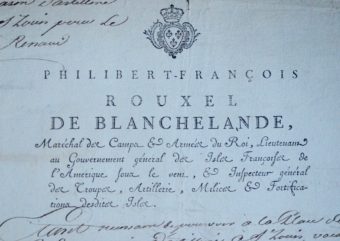 St Louis pour le
Renard
PHILIBERT-FRANÇOIS
ROUXEL
DE BLANCHELANDE,
Maréchal des Camps & Armées du Roi, Lieutenant
au Gouvernement général des Isles Françoises de
l'Amérique sous le vent, & Inspecteur général
des Troupes, Artillerie, Milices & Fortifica-
tions desdites Isles.
étant nécessaire de pourvoir à la Place de
St Louis